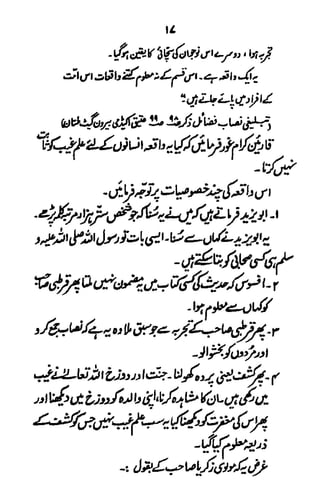 ۱۷
تجربہ ہوا، دوسرے اس نوجوان کی سچائی کا یقین ہوگیا۔
یہ ایک واقعہ ہے۔ اس قسم کے نہ معلوم کتنے واقعات اس امت
کے افراد میں پائے جاتے ہیں"
(تبلیغی نصاب فضائل ذکر ص۹۸ ص۹۹ عتیق اکیڈمی بیرون گیٹ ملتان)
قارئین کرام غور فرمائیں کہ کیا یہ واقعہ انسانوں کے لئے علم غیب کو ثابت
نہیں کرتا۔
اس واقعہ کی چند خصوصیات پر توجہ فرمائیں۔
۱۔ ابو یزید فرماتے ہیں کہ میں نے یہ سُنا کہ جو شخص ستر ہزار مرتبہ کلمہ پڑھے۔
یہ ابو یزید نے کہاں سے سُنا۔ ایسی بات تو رسول اللہ صلی اللہ علیہ و
سلم ہی کسی صحابی کو بتا سکتے ہیں۔
۲۔ افسوس کہ حدیث کی کسی کتاب میں یہ مضمون نہیں ملتا پھر قرطبی صاحب
کو کہاں سے معلوم ہوا۔
۳۔ پھر قرطبی صاحب کے تجربہ سے جو سبق ملا وہ یہ ہے کہ نصاب جمع کرو
اور مُردوں کو بخشوالو۔
۴۔ پھر کشف یعنی پردہ کھولنا۔ جنت اور دوزخ اللہ تعالےٰ نے غیب
میں رکھی ہیں۔ ان کا مشاہدہ کرنا، اپنی والدہ کو دوزخ میں دیکھنا اور
پھر اس کی مغفرت کو دیکھنا کیا یہ سب علم غیب نہیں جس کو کشف کے
ذریعہ معلوم کیا گیا۔
غرض یہ کہ مولوی زکریا صاحب کے بقول :۔